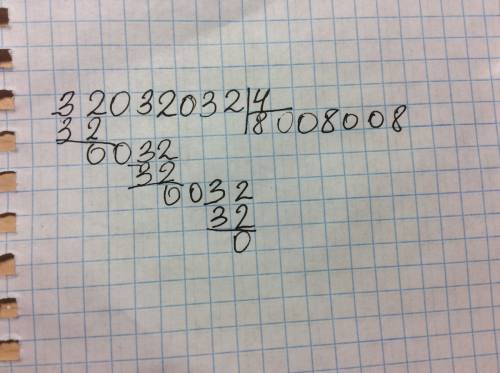 32032032|4
32 8008008
0032
32
0032
32
0